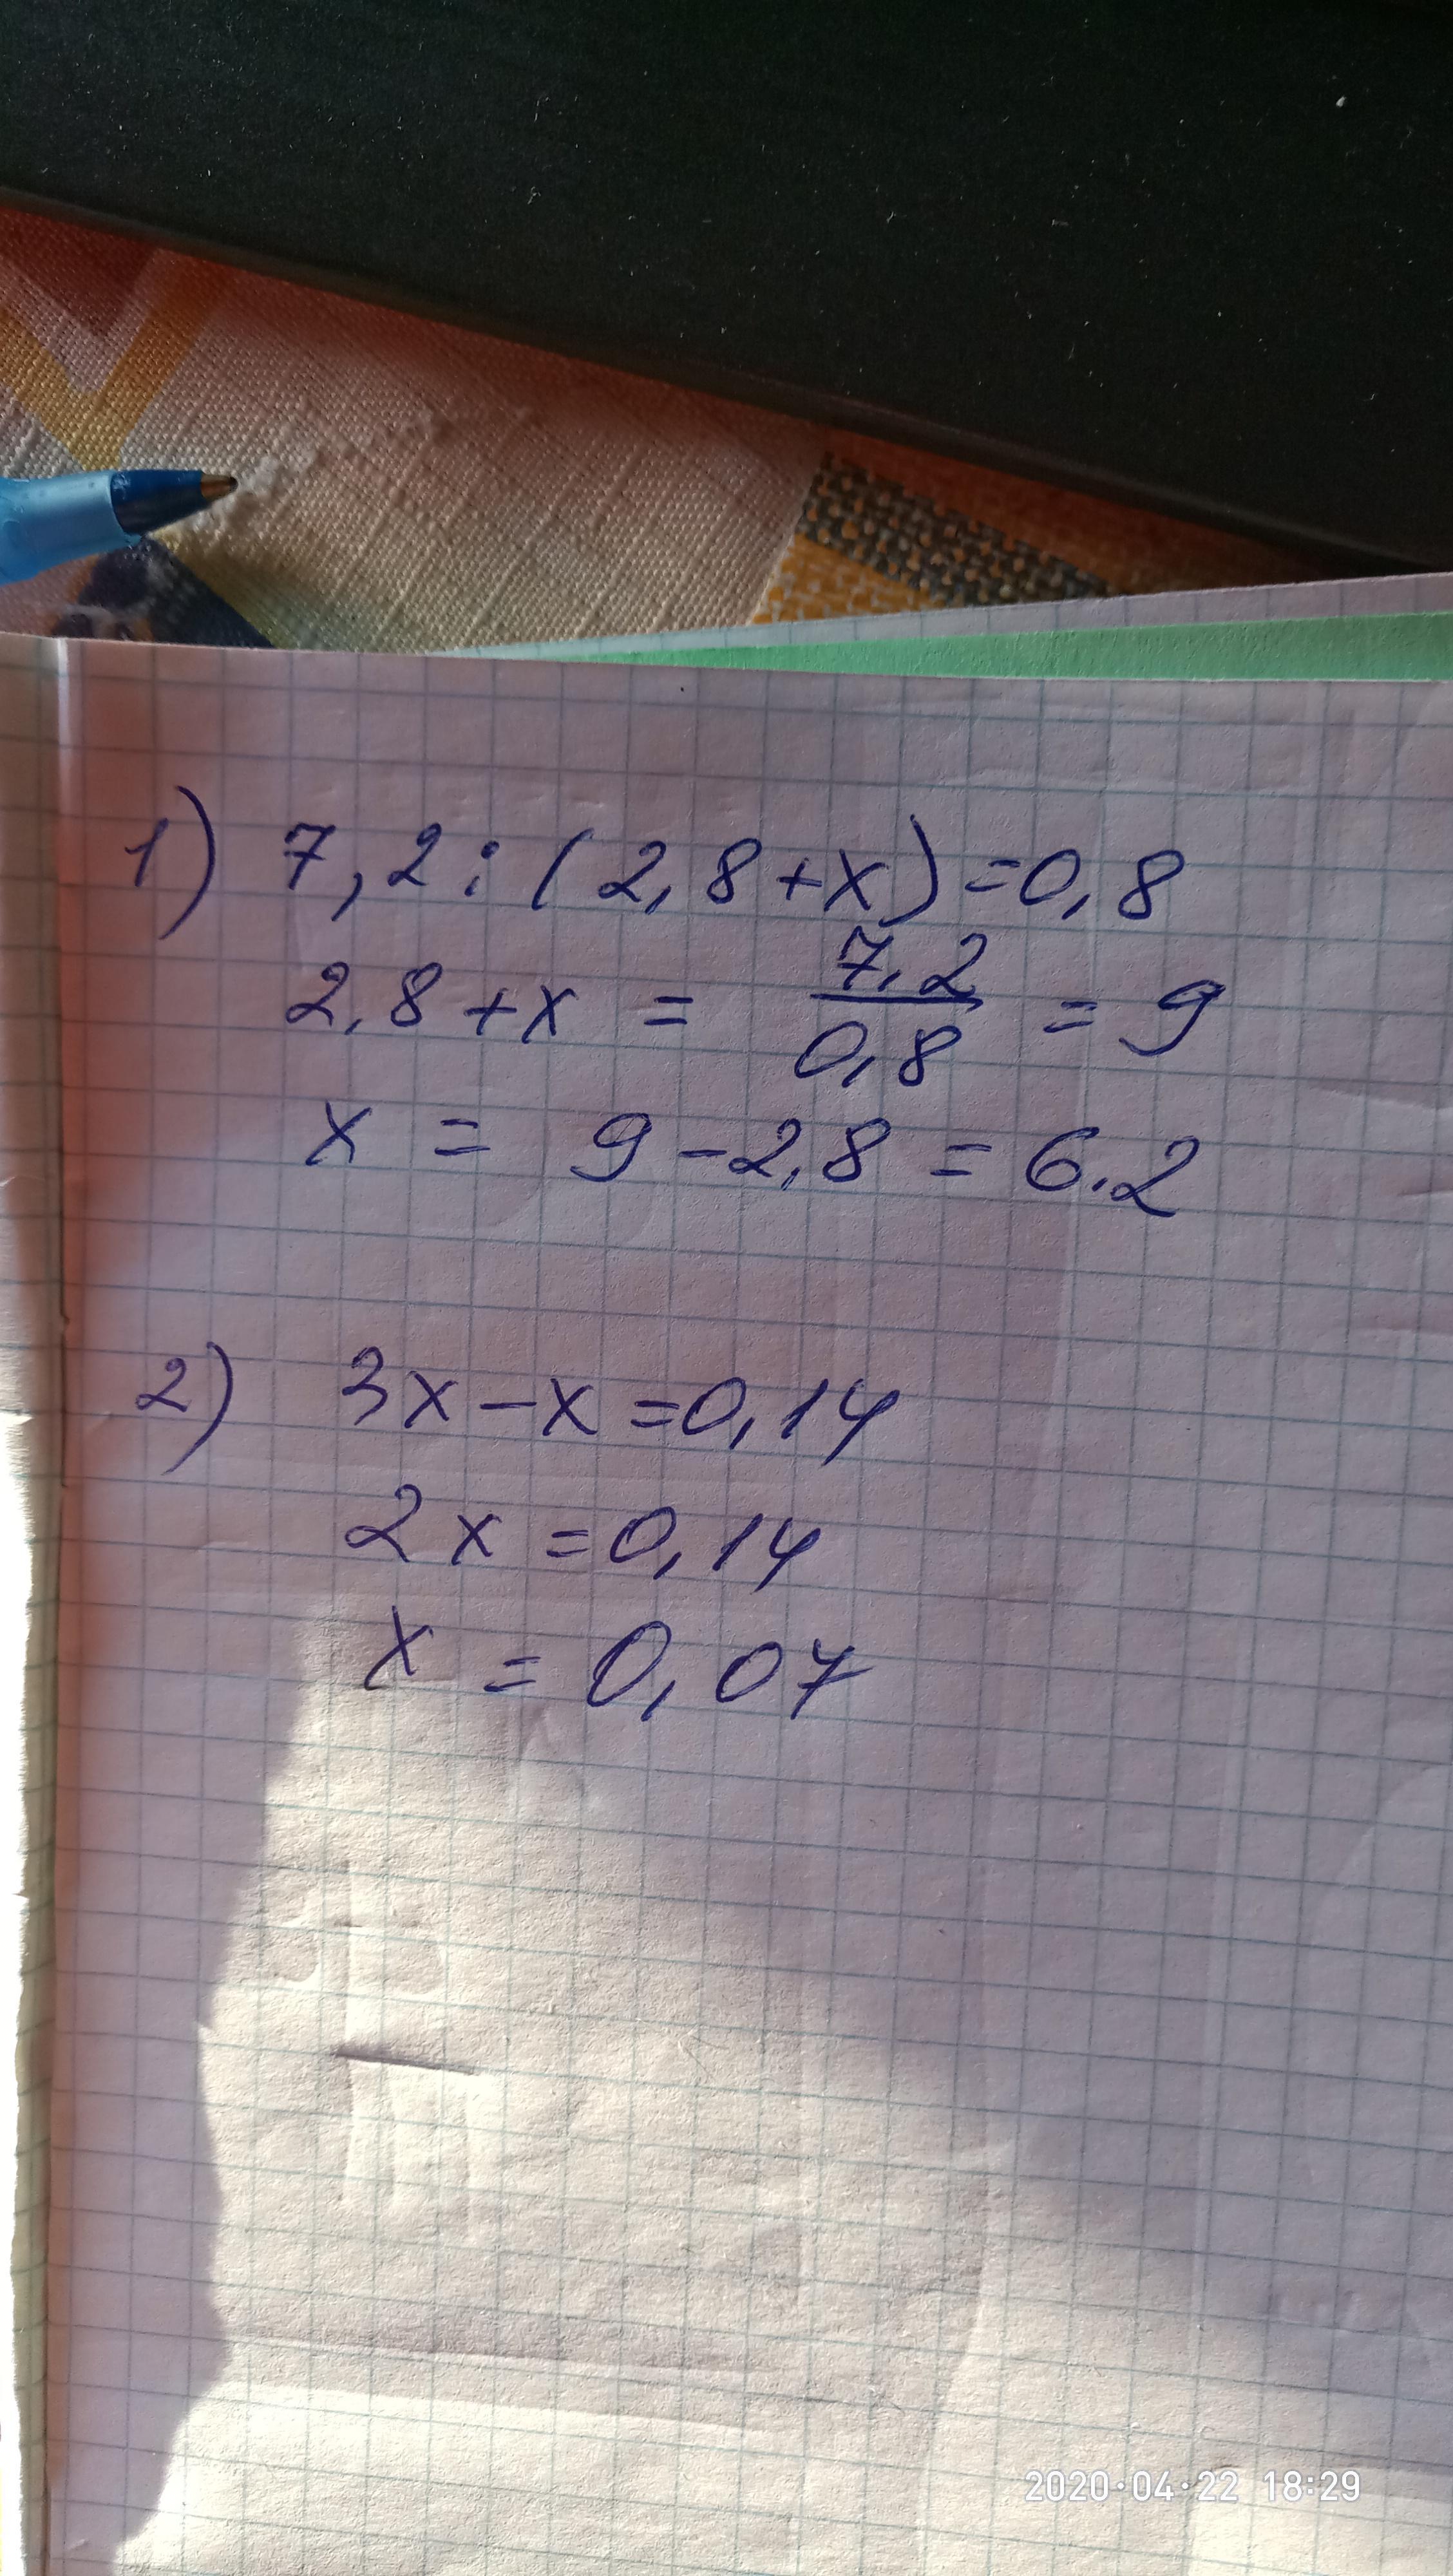 1) 7,2 : (2,8+x)=0,8
2,8+x = 7,2/0,8 = 9
x = 9-2,8 = 6.2
2) 3x-x=0,14
2x=0,14
x = 0,07
2020·04·22 18:29